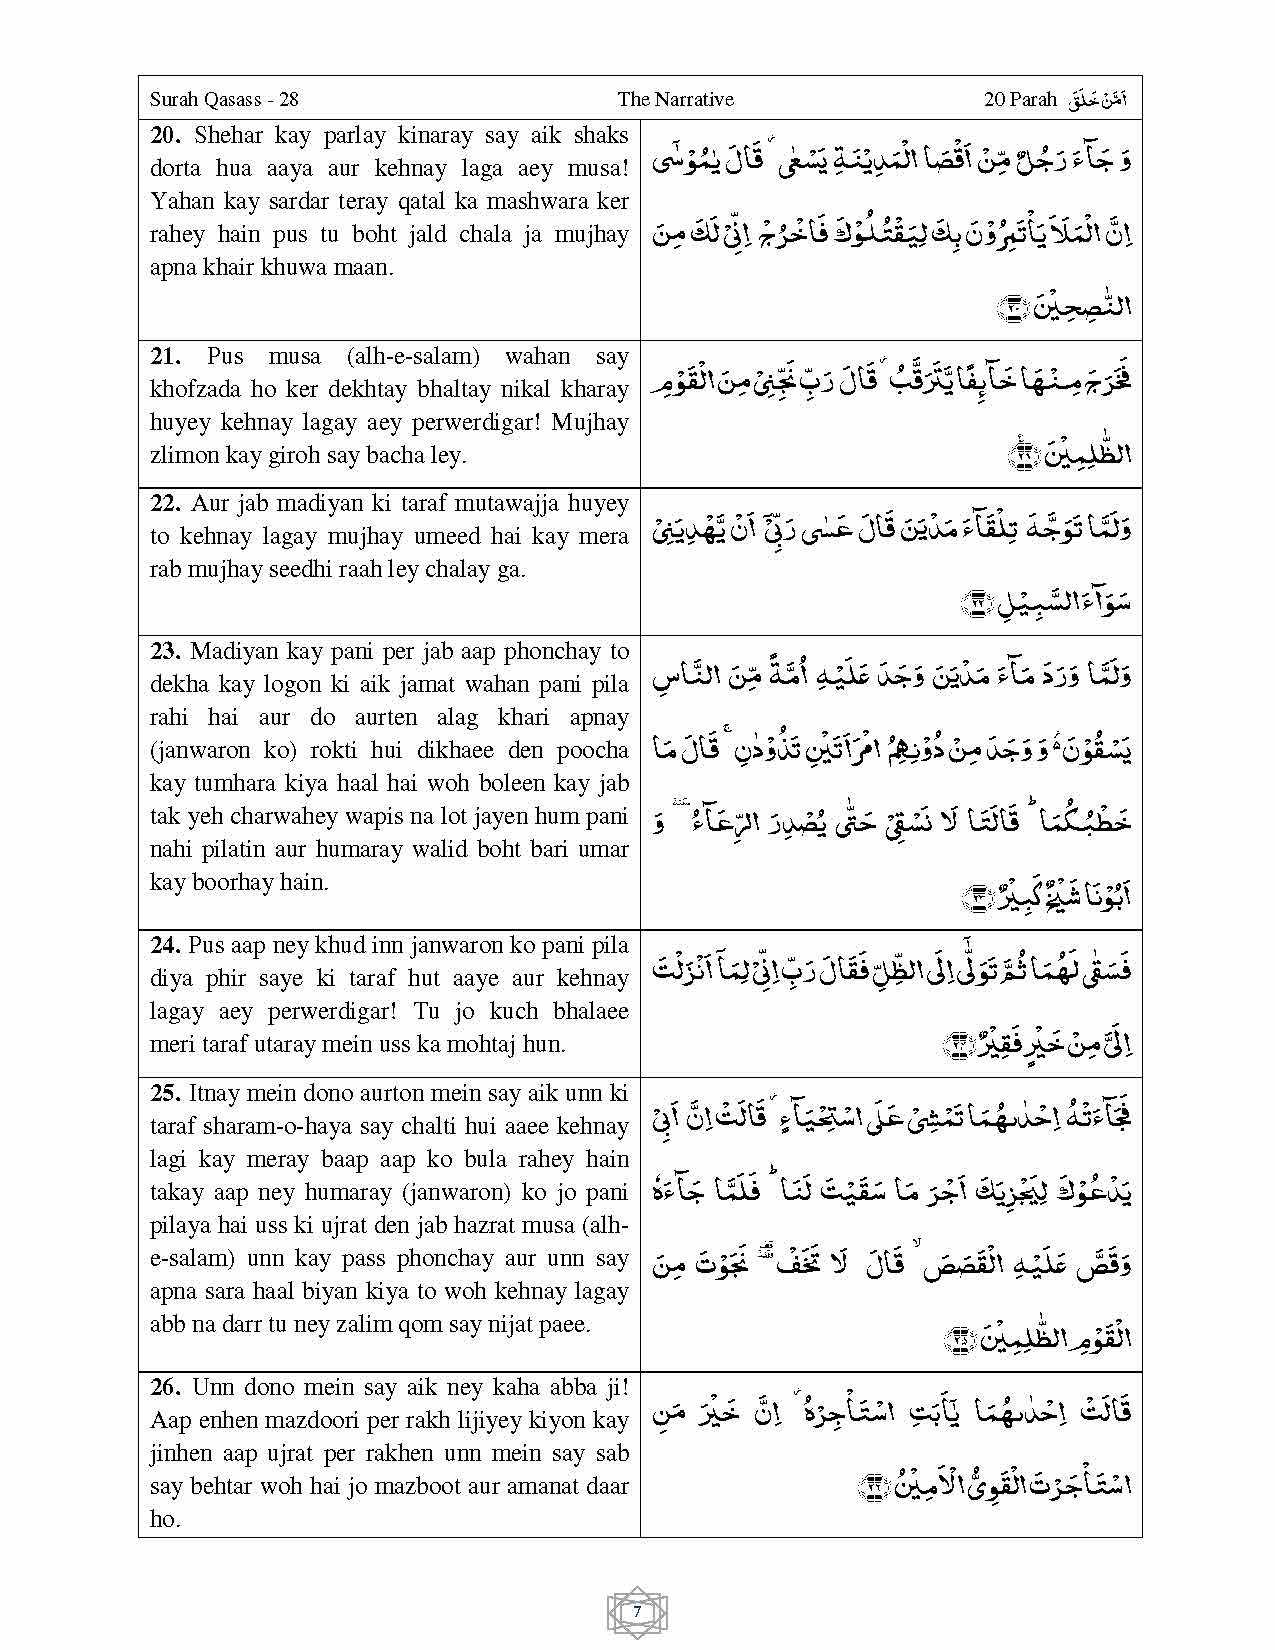 Surah Qasass - 28 The Narrative 20 Parah اَمَّنْ خَلَقَ
20. Shehar kay parlay kinaray say aik shaks
dorta hua aaya aur kehnay laga aey musa!
Yahan kay sardar teray qatal ka mashwara ker
rahey hain pus tu boht jald chala ja mujhay
apna khair khuwa maan.
وَ جَآءَ رَجُلٌ مِّنْ اَقْصَا الْمَدِيْنَةِ يَسْعٰى ۡ قَالَ يٰمُوْسٰٓى
اِنَّ الْمَلَاَ يَاْتَمِرُوْنَ بِكَ لِيَقْتُلُوْكَ فَاخْرُجْ اِنِّىْ لَكَ مِنَ
النّٰصِحِيْنَ ۲۰
21. Pus musa (alh-e-salam) wahan say
khofzada ho ker dekhtay bhaltay nikal kharay
huyey kehnay lagay aey perwerdigar! Mujhay
zlimon kay giroh say bacha ley.
فَخَرَجَ مِنْهَا خَآئِفًا يَّتَرَقَّبُ ۡ قَالَ رَبِّ نَجِّنِىْ مِنَ الْقَوْمِ
الظّٰلِمِيْنَ ۲۱
22. Aur jab madiyan ki taraf mutawajja huyey
to kehnay lagay mujhay umeed hai kay mera
rab mujhay seedhi raah ley chalay ga.
وَلَمَّا تَوَجَّهَ تِلْقَآءَ مَدْيَنَ قَالَ عَسٰى رَبِّىْٓ اَنْ يَّهْدِيَنِىْ
سَوَآءَ السَّبِيْلِ ۲۲
23. Madiyan kay pani per jab aap phonchay to
dekha kay logon ki aik jamat wahan pani pila
rahi hai aur do aurten alag khari apnay
(janwaron ko) rokti hui dikhaee den poocha
kay tumhara kiya haal hai woh boleen kay jab
tak yeh charwahey wapis na lot jayen hum pani
nahi pilatin aur humaray walid boht bari umar
kay boorhay hain.
وَلَمَّا وَرَدَ مَآءَ مَدْيَنَ وَجَدَ عَلَيْهِ اُمَّةً مِّنَ النَّاسِ
يَسْقُوْنَ ۙ وَ وَجَدَ مِنْ دُوْنِهِمُ امْرَاَتَيْنِ تَذُوْدٰنِ ۚ قَالَ مَا
خَطْبُكُمَا ؕ قَالَتَا لَا نَسْقِىْ حَتّٰى يُصْدِرَ الرِّعَآءُ وَ
اَبُوْنَا شَيْخٌ كَبِيْرٌ ۲۳
24. Pus aap ney khud inn janwaron ko pani pila
diya phir saye ki taraf hut aaye aur kehnay
lagay aey perwerdigar! Tu jo kuch bhalaee
meri taraf utaray mein uss ka mohtaj hun.
فَسَقٰى لَهُمَا ثُمَّ تَوَلّٰىٓ اِلَى الظِّلِّ فَقَالَ رَبِّ اِنِّىْ لِمَآ اَنْزَلْتَ
اِلَىَّ مِنْ خَيْرٍ فَقِيْرٌ ۲۴
25. Itnay mein dono aurton mein say aik unn ki
taraf sharam-o-haya say chalti hui aaee kehnay
lagi kay meray baap aap ko bula rahey hain
takay aap ney humaray (janwaron) ko jo pani
pilaya hai uss ki ujrat den jab hazrat musa (alh-
e-salam) unn kay pass phonchay aur unn say
apna sara haal biyan kiya to woh kehnay lagay
abb na darr tu ney zalim qom say nijat paee.
فَجَآءَتْهُ اِحْدٰىهُمَا تَمْشِىْ عَلَى اسْتِحْيَآءٍ ۡ قَالَتْ اِنَّ اَبِىْ
يَدْعُوْكَ لِيَجْزِيَكَ اَجْرَ مَا سَقَيْتَ لَنَا ؕ فَلَمَّا جَآءَهٗ
وَقَصَّ عَلَيْهِ الْقَصَصَ ۙ قَالَ لَا تَخَفْ نَجَوْتَ مِنَ
الْقَوْمِ الظّٰلِمِيْنَ ۲۵
26. Unn dono mein say aik ney kaha abba ji!
Aap enhen mazdoori per rakh lijiyey kiyon kay
jinhen aap ujrat per rakhen unn mein say sab
say behtar woh hai jo mazboot aur amanat daar
ho.
قَالَتْ اِحْدٰىهُمَا يٰٓاَبَتِ اسْتَاْجِرْهُ ۡ اِنَّ خَيْرَ مَنِ
اسْتَاْجَرْتَ الْقَوِىُّ الْاَمِيْنُ ۲۶
7